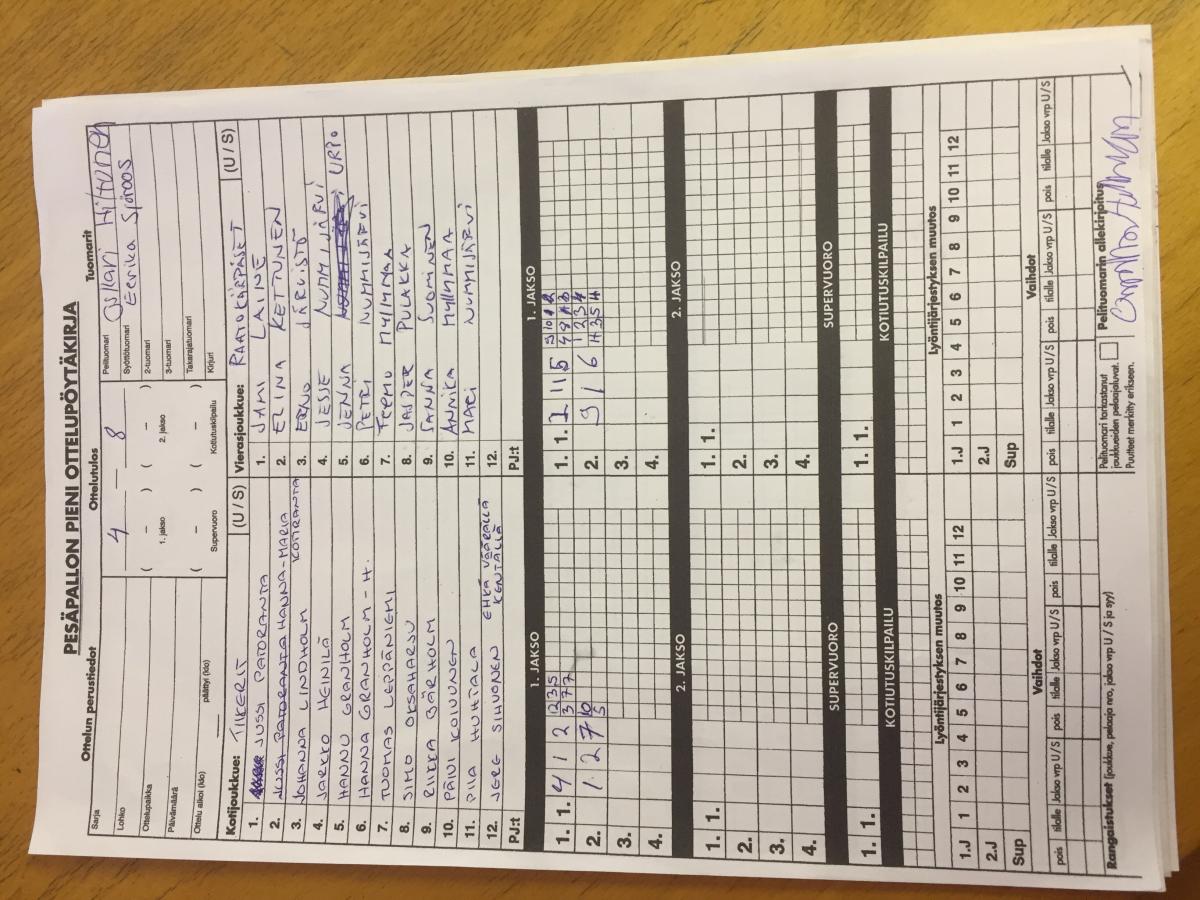 PESÄPALLON PIENI OTTELUPÖYTÄKIRJA
Ottelun perustiedot
Ottelutulos
Tuomarit
Sarja
Lohko
Ottelupaikka
Päivämäärä
Ottelu alkoi (klo) päättyi (klo)
4 — 8
( – ) ( – )
1. jakso 2. jakso
( – ) ( – )
Supervuoro Kotiutuskilpailu
Pelituomari Ossari Hiltunen
Syöttötuomari Eerika Sjöroos
2-tuomari
3-tuomari
Takarajatuomari
Kirjuri
Kotijoukkue: TIIKERIT (U / S)
1. JUSSI PATORANTA
2. JUSSI PATORANTA HANNA-MARIA KOTIRANTA
3. JOHANNA LINDHOLM
4. JARKKO HEINILÄ
5. HANNU GRANHOLM
6. HANNA GRANHOLM - H.
7. TUOMAS LEPPÄNIEMI
8. SIMO OKSAHARJU
9. RIIKKA BÄRHOLM
10. PÄIVI KOIVUNEN
11. PIIA HUHTALA
12. JERE SIHVONEN EHKÄ VÄÄRÄLLÄ KENTÄLLÄ
PJ:t
Vierasjoukkue: RAATOKÄRPÄSET (U / S)
1. JAMI LAINE
2. ELINA KETTUNEN
3. EERO JÄRVISTÖ
4. JESSE NUMMIJÄRVI
5. JENNA URPO
6. PETRI NUMMIJÄRVI
7. TEEMU MYLLYMAA
8. JASPER PULAKKA
9. SANNA SUOMINEN
10. ANNIKA MYLLYMAA
11. MARI NUMMIJÄRVI
12.
PJ:t
1. JAKSO
1. 1. 4 1 2
2. 1 2 7
3.
4.
1. JAKSO
1. 1. 2 11 5
2. 9 1 6
3.
4.
2. JAKSO
1. 1.
2.
3.
4.
2. JAKSO
1. 1.
2.
3.
4.
SUPERVUORO
1. 1.
SUPERVUORO
1. 1.
KOTIUTUSKILPAILU
KOTIUTUSKILPAILU
Lyöntijärjestyksen muutos
1.J 1 2 3 4 5 6 7 8 9 10 11 12
2.J
Sup
Lyöntijärjestyksen muutos
1.J 1 2 3 4 5 6 7 8 9 10 11 12
2.J
Sup
Vaihdot
pois tilalle Jakso vrp U / S pois tilalle Jakso vrp U / S pois tilalle Jakso vrp U / S
Vaihdot
pois tilalle Jakso vrp U / S pois tilalle Jakso vrp U / S pois tilalle Jakso vrp U / S
Rangaistukset (joukkue, pelaaja nro, jakso vrp U / S ja syy)
Pelituomari tarkastanut joukkueiden pelaajaluvat.
Puutteet merkitty erikseen.
Pelituomarin allekirjoitus